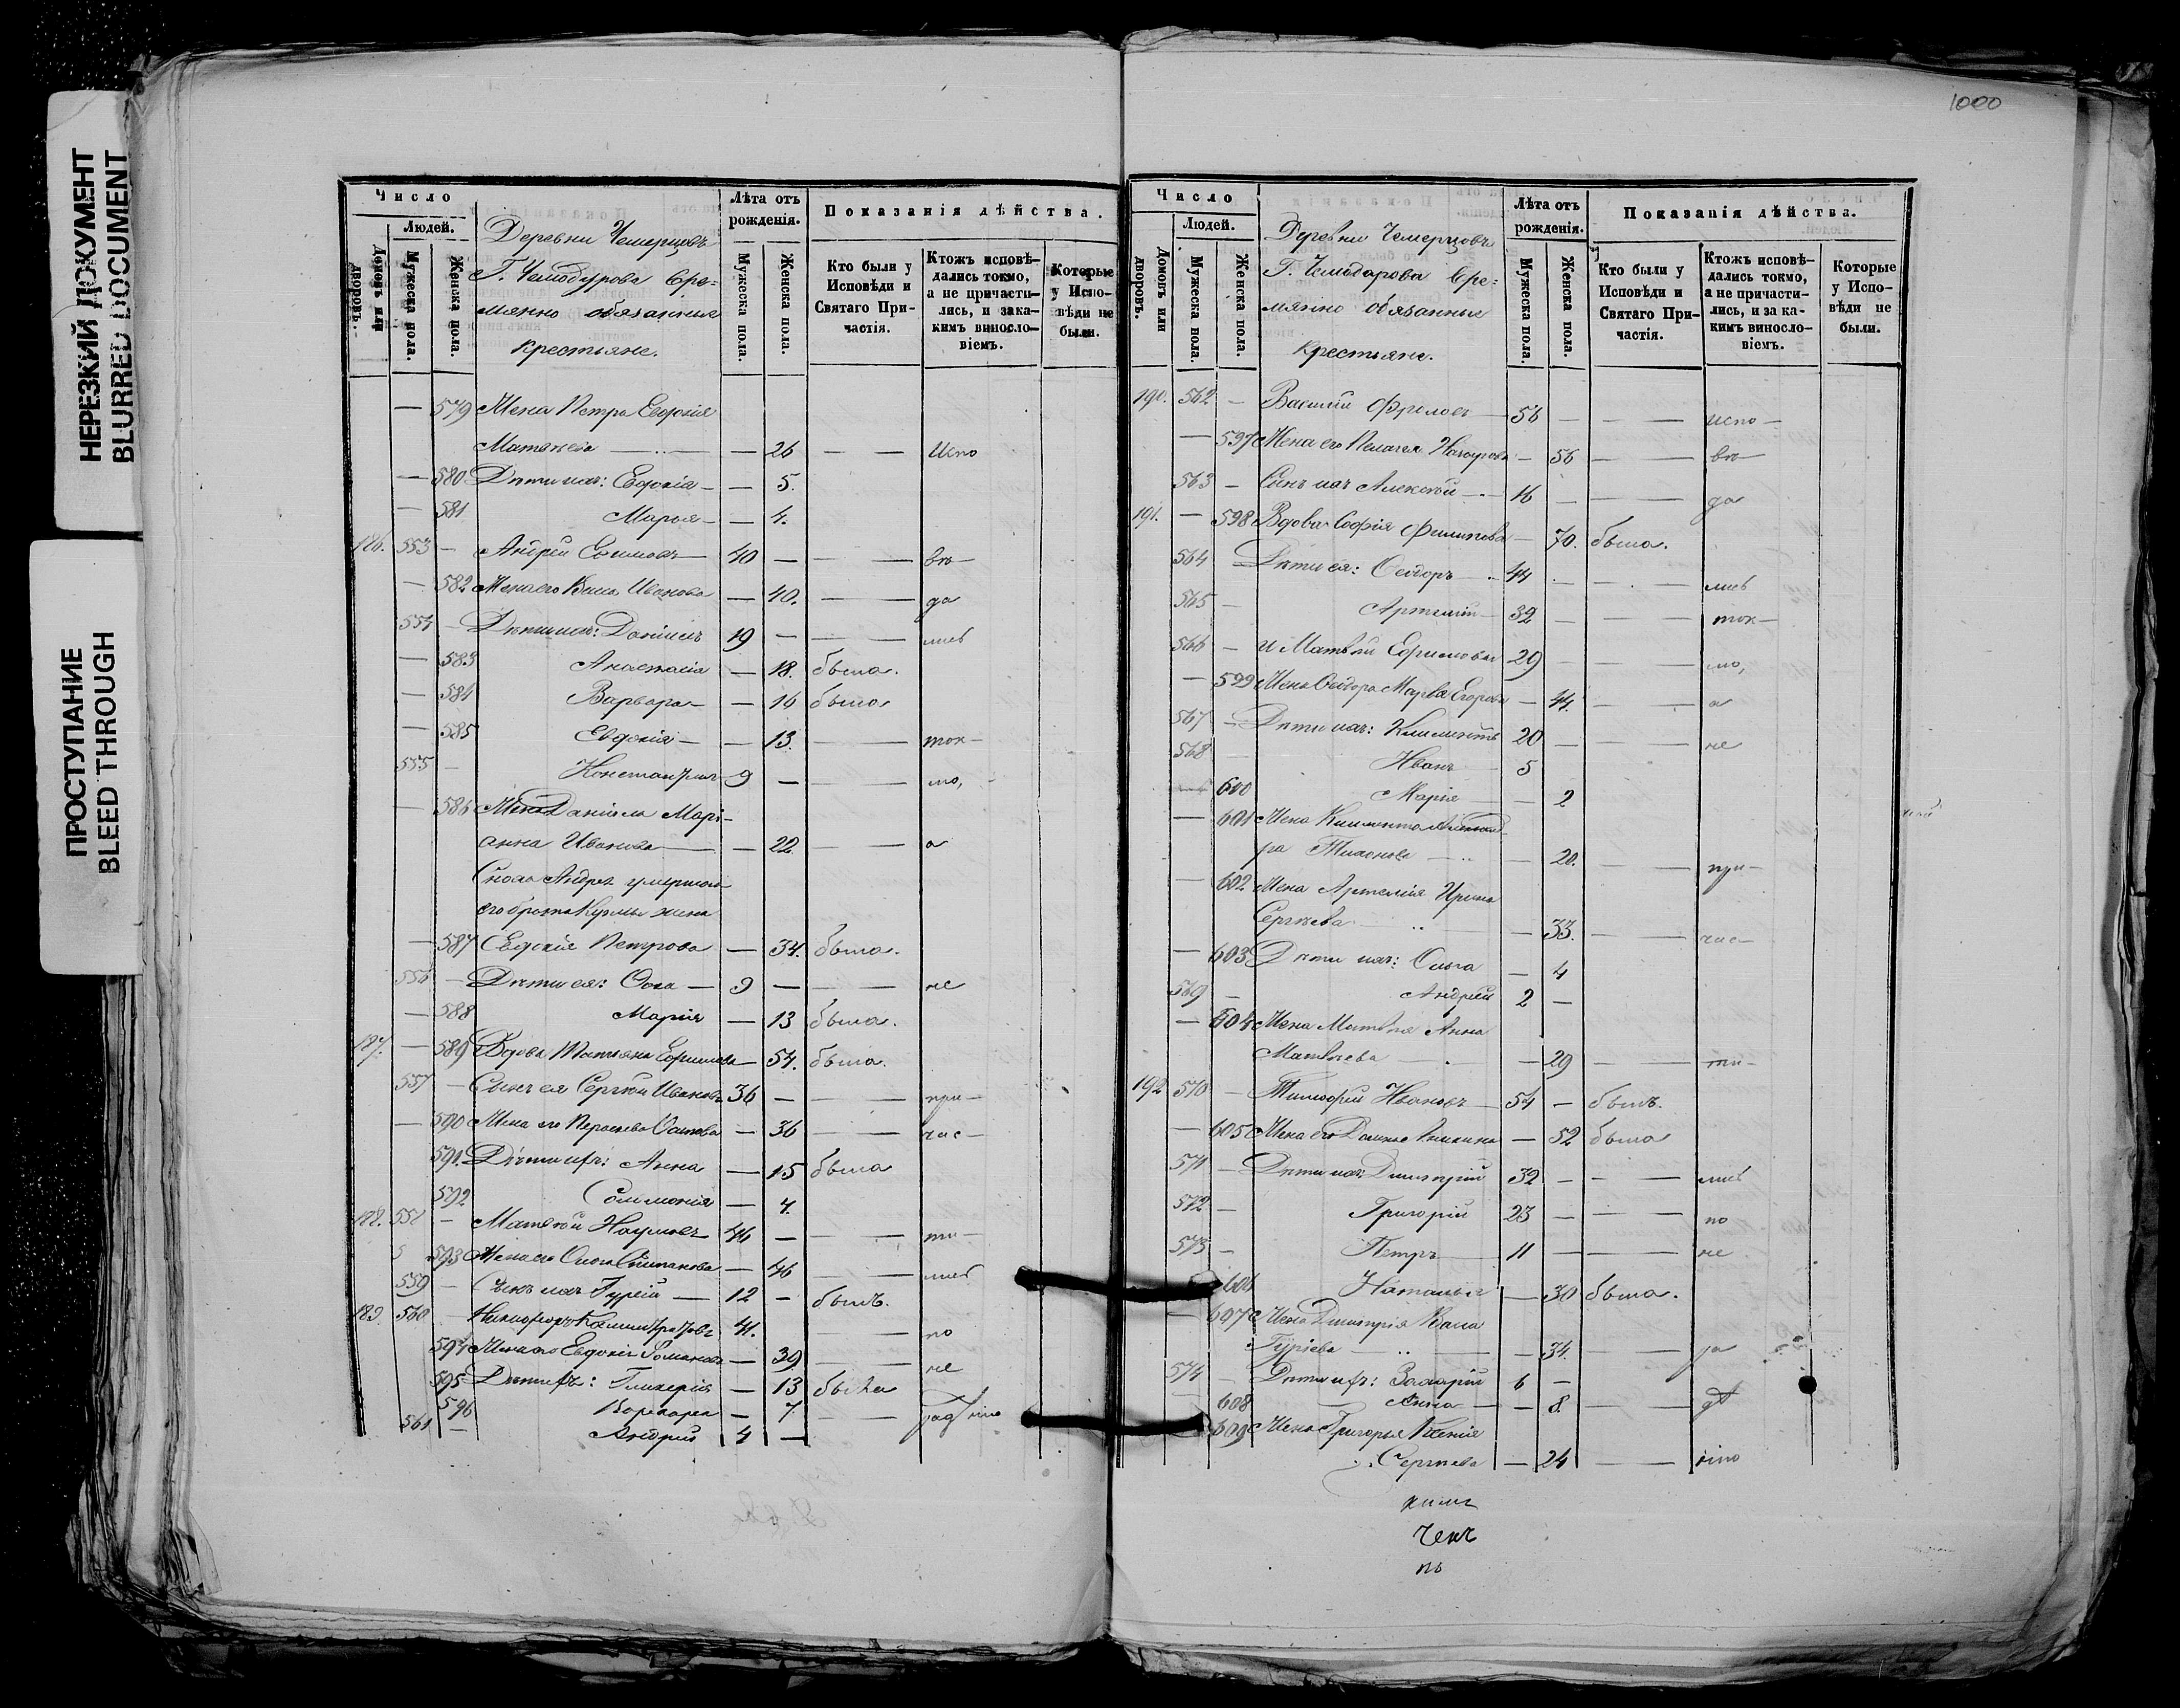 НЕРЕЗКИЙ ДОКУМЕНТ
BLURRED DOCUMENT
ПРОСТУПАНИЕ
BLEED THROUGH
Число
Людей.
Домовъ или дворовъ.
Мужеска пола.
Женска пола.
Деревни Чемерцовъ
Г. Чемодурова Вре-
мянно обязанные
крестьяне.
Лѣта отъ рожденія.
Мужеска пола.
Женска пола.
Показанія дѣйства.
Кто были у Исповѣди и Святаго Причастія.
Ктожъ исповѣ-
дались токмо,
а не причасти-
лись, и зака-
кимъ винosло-
віемъ.
Которые
у Испо-
вѣди не
были.
— 579 Жена Петра Евдокія
Матвѣева — — 26 — — испо
— 580 Дѣти ихъ: Евдокія — — 5.
— 581 Марья — — 4.
186. 553 — Андрей Ефимовъ — 40 — — вѣ—
— 582 Жена его Ивановa — 40. — да
554 — Дѣти ихъ: Даніилъ 19 — — лись
— 583 Анастасія — 18. была.
— 584 Варвара — — 16 была
— 585 Евдокія — — 13. — ток—
555 — Константинъ 9 — — мо,
— 586 Жена Даніила Марі-
анна Иванова — — 22 — — а
Сноха Андрея умершаго
его брата Кузмы жена
— 587 Евдокія Петрова — 34. была.
556 — Дѣти ея: — 9 — — не
— 588 Марія — 13 была.
187. — 589 Вдова Татьяна Ефимова — 54. была.
557 — Сынъ ея Сергѣй Ивановъ 36 — — при—
— 590 Жена его — 36 — час—
591. Дѣти ихъ: Анна — 15 была
592 Соломонія — 4.
188. 558 — Матвѣй Наумовъ 46 — — ти—
593 Жена его Степанова — 46 — лись
559 — Сынъ ихъ Гурій — 12 — былъ.
189. 560 Никифоръ 41. — по
594 Жена его Евдокія Романова — 39 — не
595 Дѣти ихъ: Гликерія — 13 была
596 Варвара — 7. — радѣнію
561 — Андрей 4 —
1000
Число
Людей.
Домовъ или дворовъ.
Мужеска пола.
Женска пола.
Деревни Чемерцовъ
Г. Чемодарова Вре-
мянно обязанные
крестьяне.
Лѣта отъ рожденія.
Мужеска пола.
Женска пола.
Показанія дѣйства.
Кто были у Исповѣди и Святаго Причастія.
Ктожъ исповѣ-
дались токмо,
а не причасти-
лись, и за ка-
кимъ винosло-
віемъ.
Которые
у Испо-
вѣди не
были.
190. 562 — Василій Фроловъ — 56 — — испо—
— 597 Жена его Пелагея — 56 — вѣ—
563 — Сынъ ихъ Алексѣй — 16 — — да
191. — 598 Вдова Софія Филипова — 70. была.
564 — Дѣти ея: Ѳеодоръ 44 — — лись
565 — Артемій — 32 — — ток—
566 — и Матвѣй Ефимовы 29 — — мо,
— 599 Жена Ѳеодора Марѳа Егорова — 44. — а
567 — Дѣти ихъ: Климентъ 20 — — не
568 Иванъ 5
600 Марія — 2
— 601 Жена Климента Александ
ра Тихонова — 20. — при—
— 602 Жена Артемія Ирина
Сергѣева — 33. — час—
— 603 Дѣти ихъ: Ольга — 4
569 — Андрей 2 —
— 604 Жена Матвѣя Анна
Матвѣева — 29 — ти—
192 570 — Тимофей Ивановъ 54 — былъ.
— 605 Жена его — 52 была
571 — Дѣти ихъ: Димитрій 32 — — лись
572 — Григорій 23 — — по
573 — Петръ 11 — — не
606 Наталья — 30 была.
— 607 Жена Димитрія
Гуріева — 34. — ра
574 — Дѣти ихъ: Захарій 6 —
608 Анна — — 8. — дѣ
609 Жена Григорья Ксенія
Сергѣева — 24 — нію